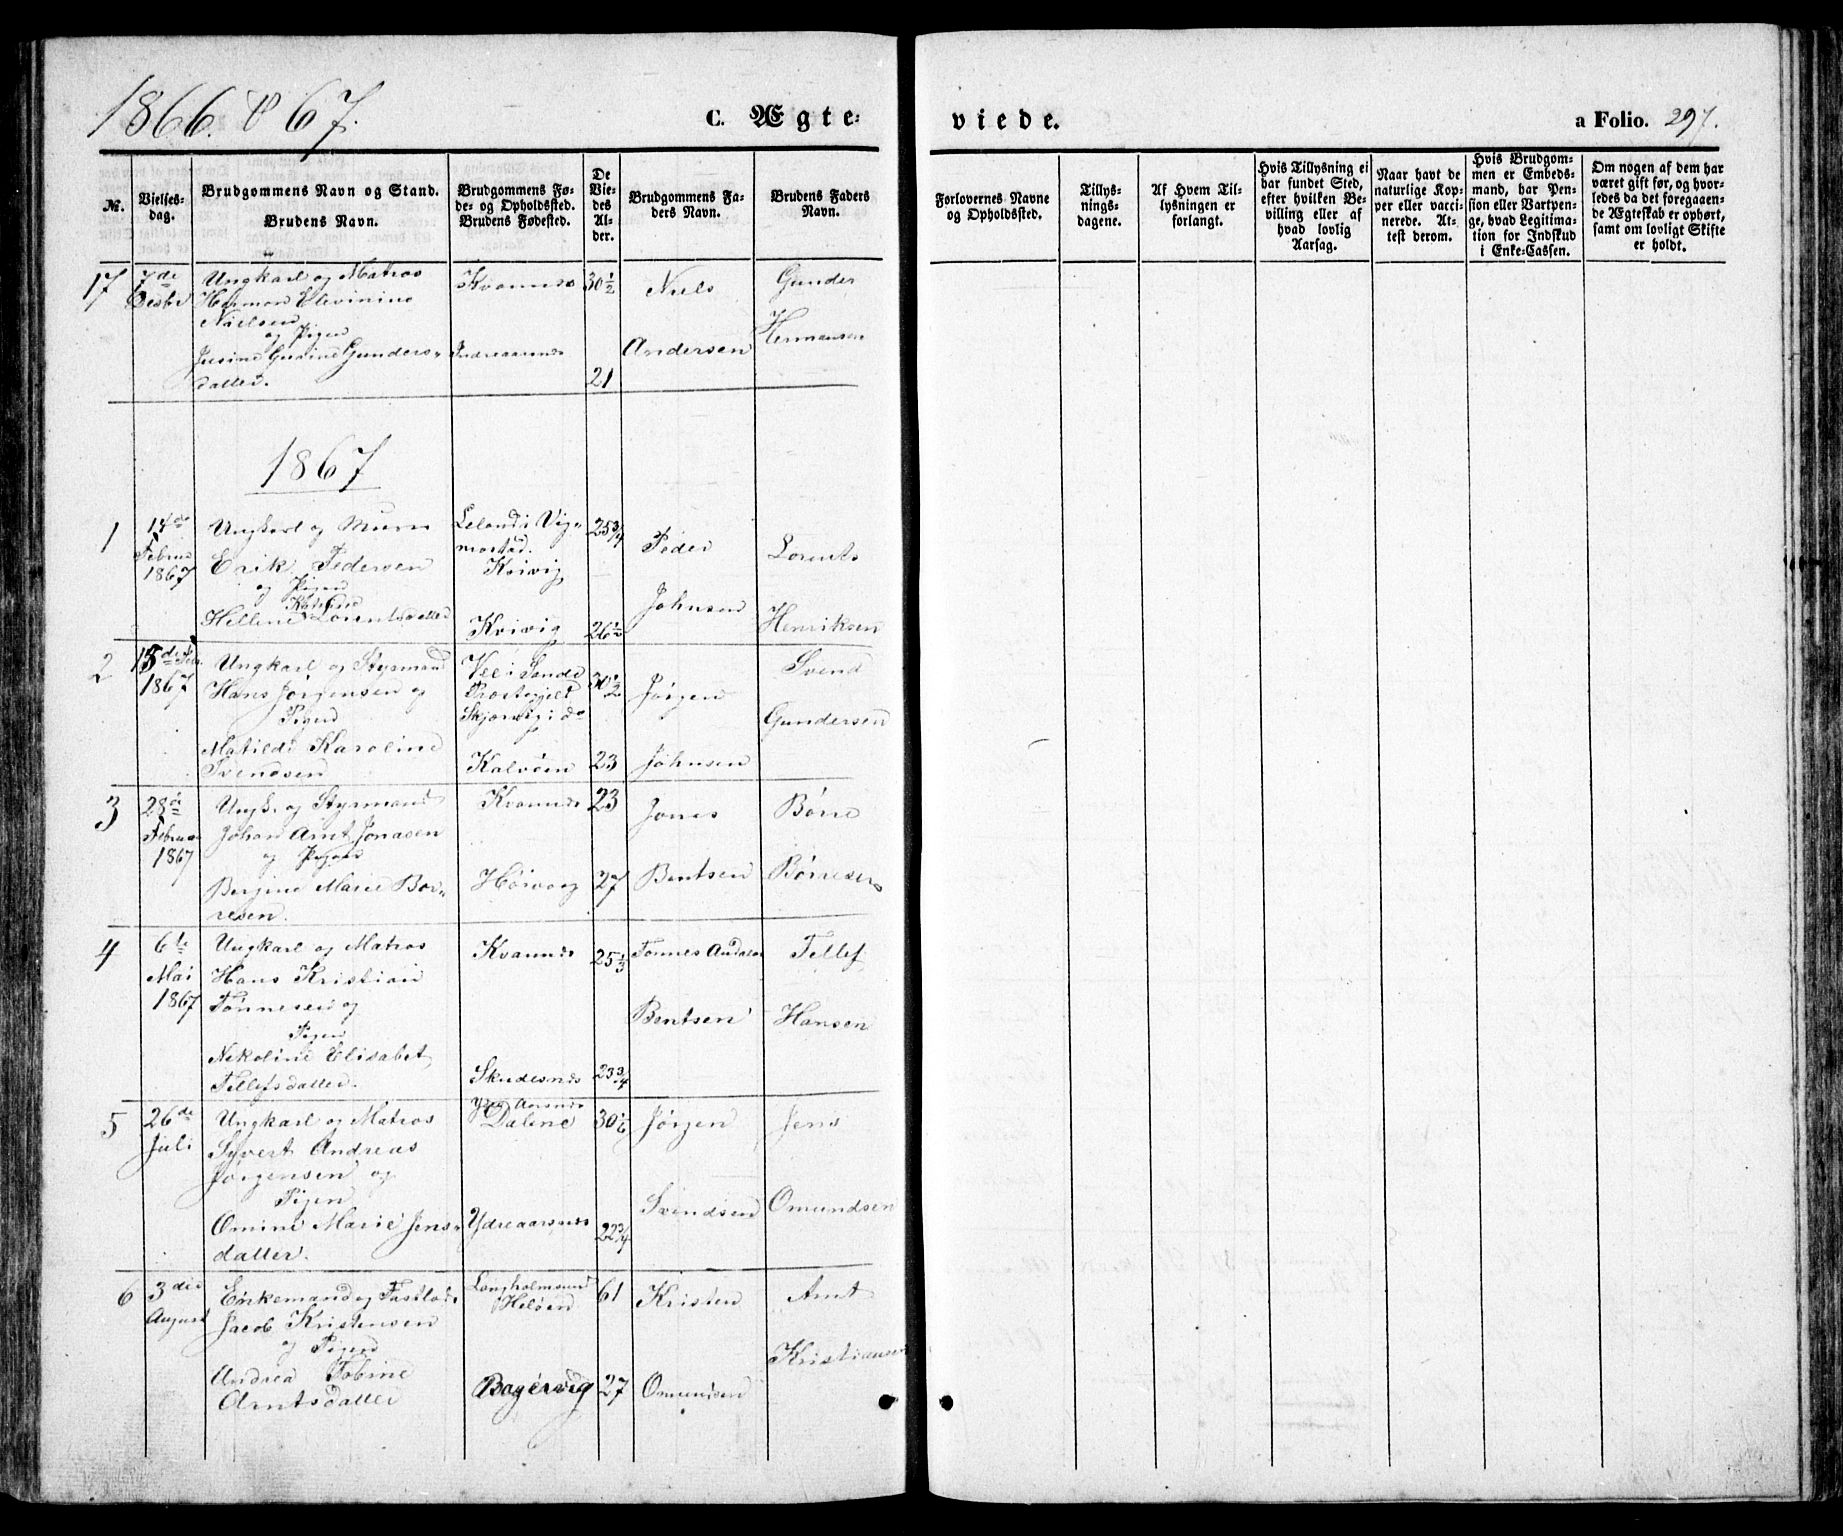 1866. & 67.
C. Ægte-
viede.
a Folio. 297.
№.
Vielses-
dag.
Brudgommens Navn og Stand.
Brudens Navn.
Brudgommens Fø-
de- og Opholdssted.
Brudens Fødested.
De
Vie-
des
Al-
der.
Brudgommens Fa-
ders Navn.
Brudens Faders
Navn.
Forlovernes Navne
og Opholdssted.
Tillys-
nings-
dagene.
Af Hvem Til-
lysningen er
forlangt.
Hvis Tillysning ei
har fundet Sted,
efter hvilken Be-
villing eller af
hvad lovlig
Aarsag.
Naar havt de
naturlige Kop-
per eller vacci-
nerede. At-
test derom.
Hvis Brudgom-
men er Embeds-
mand, har Pen-
sion eller Vartpen-
ge, hvad Legitima-
tion for Indskud
i Enke-Cassen.
Om nogen af dem har
været gift før, og hvor-
ledes da det foregaaen-
de Ægteskab er ophørt,
samt om lovligt Skifte
er holdt.
17
7de
Desbr
Ungkarl og Matros
Herman
Nielsen
og Pigen
Gunders-
datter.
30½
21
Niels
Andersen
Gunder
Hermansen
1867
1
14de
Februar
1867
Ungkarl og
Erik Pedersen
og Pigen
Helline Lorentsdatter
Leland i Vig-
mostad.
Kvivig
Kvivig
25¾
26½
Peder
Johnsen
Lorents
Henriksen
2
15de Feb.
1867
Ungkarl og Styrmand
Hans Jörgensen og
Pigen
Matilde Karoline
Svendsen
Præstegjeld
Kalvöen
30½
23
Jörgen
Johnsen
Svend
Gundersen
3
28de
Februar
1867
Ungk. og Styrmand
Johan Arnt Jonasen
og Pigen
Bergine Marie Bör-
resen.
Höivaag
23
27
Jones
Bentsen
Börre
Börresen
4
6te
Mai
1867
Ungkarl og Matros
Hans Kristian
Tönnesen og
Pigen
Nekoline Elisabet
Tellefsdatter.
Skudesnes
25⅓
23¾
Tönnes
Bentsen
Tellef
Hansen
5
26de
Juli
Ungkarl og Matros
Syvert Andreas
Jörgensen og
Pigen
Omine Marie Jens-
datter.
Dalene
Ydreaarsnes
30⅙
22¾
Jörgen
Svendsen
Jens
Omundsen
6
3die
August
Enkemand og
Jacob Kristensen
og Pigen
Andrea Tobine
Arntsdatter
Langholmsund
Helöen
61
27
Kristen
Omundsen
Arnt
Kristiansen